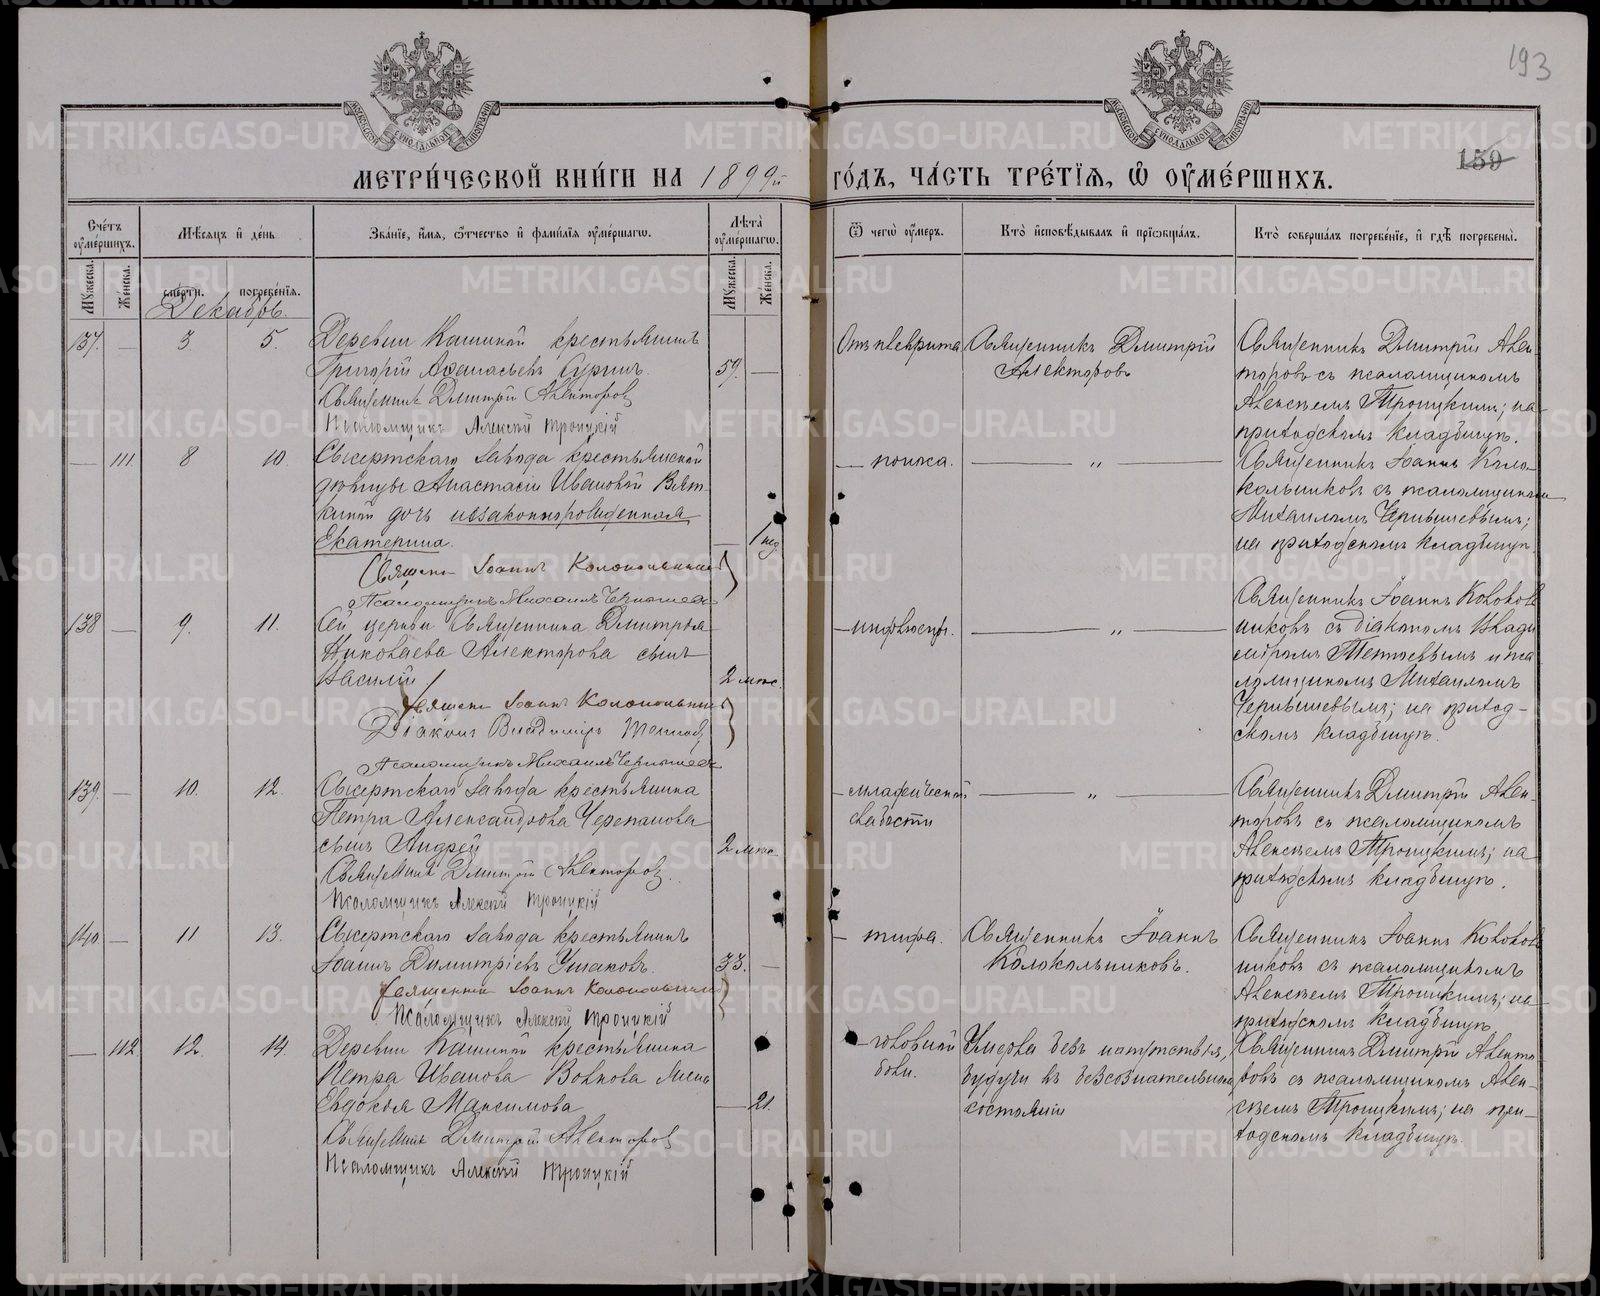 193
159
МЕТРИ́ЧЕСКОЙ КНИ́ГИ НА 1899й ГО́ДЪ, ЧА́СТЬ ТРЕ́ТІѦ, Ѡ҆ ОУ҆МЕ́РШИХЪ.
Сче́тъ оу҆ме́ршихъ.
Мѣ́сѧцъ и҆ де́нь.
Зва́нїе, и҆́мѧ, ѻ҆́тчество и҆ фами́лїѧ оу҆ме́ршагѡ.
Лѣ́та оу҆ме́ршагѡ.
Ѿ чегѡ̀ оу҆́меръ.
Кто̀ и҆сповѣ́дывалъ и҆ прїѡбща́лъ.
Кто̀ соверша́лъ погребе́нїе, и҆ гдѣ̀ погребены̀.
Мꙋ́жеска.
Же́нска.
сме́рти.
погребе́нїѧ.
Мꙋ́жеска.
Же́нска.
Декабрь.
137. — 3 5. Деревни Кашиной крестьянинъ
Григорій Аѳанасьевъ Суринъ. 59. —
Священникъ Дмитрій Алекторов
Псаломщикъ Алексѣй Троицкій
Отъ плеврита
Священникъ Дмитрій
Алекторовъ
Священникъ Дмитрій Алек-
торовъ съ псаломщикомъ
Алексѣемъ Троицкимъ; на
приходскомъ кладбищѣ.
— 111. 8 10. Сысертскаго завода крестьянской
дѣвицы Анастасіи Ивановой Вят-
киной дочь незаконнорожденная
Екатерина. — 1 нед
Священ Іоаннъ Колокольник
Псаломщикъ Михаилъ Чернышев
— поноса.
— „ —
Священникъ Іоаннъ Коло-
кольниковъ съ псаломщикомъ
Михаиломъ Чернышевымъ;
на приходскомъ кладбищѣ
138 — 9. 11. Сей церкви Священника Димитрія
Николаева Алекторова сынъ
Василій. 2 мѣс.
Священ Іоаннъ Колокольник
Діаконъ Владиміръ
Псаломщикъ Михаилъ Чернышев
— инфлюенц.
— „ —
Священникъ Іоаннъ Колоколь
никовъ съ діакономъ Влади
міромъ и пса
ломщикомъ Михаиломъ
Чернышевымъ; на приход-
скомъ кладбищѣ.
139. — 10. 12. Сысертскаго завода крестьянина
Петра Александрова Черепанова
сынъ Андрей 2 мѣс.
Священникъ Дмитрій Алекторов.
Псаломщикъ Алексѣй Троицкій
— младенческой
слабости
— „ —
Священникъ Дмитрій Алек-
торовъ съ псаломщикомъ
Алексѣемъ Троицкимъ; на
приходскомъ кладбищѣ.
140 — 11 13. Сысертскаго завода крестьянинъ
Іоаннъ Димитріевъ Ушаковъ. 33. —
Священник Іоаннъ Колокольников
Псаломщикъ Алексѣй Троицкій
— тифа.
Священникъ Іоаннъ
Колокольниковъ.
Священникъ Іоаннъ Колоколь
никовъ съ псаломщикомъ
Алексѣемъ Троицкимъ; на
приходскомъ кладбищѣ
— 112 12. 14. Деревни Кашиной крестьянина
Петра Иванова Волкова жена
Евдокія Максимова — 21.
Священник Дмитрій Алекторов
Псаломщикъ Алексѣй Троицкій
— головной
боли.
Умерла безъ напутствія,
будучи въ безсознательномъ
состояніи
Священникъ Дмитрій Алекто
ровъ съ псаломщикомъ Алек-
сѣемъ Троицкимъ; на при-
ходскомъ кладбищѣ.
METRIKI.GASO-URAL.RU